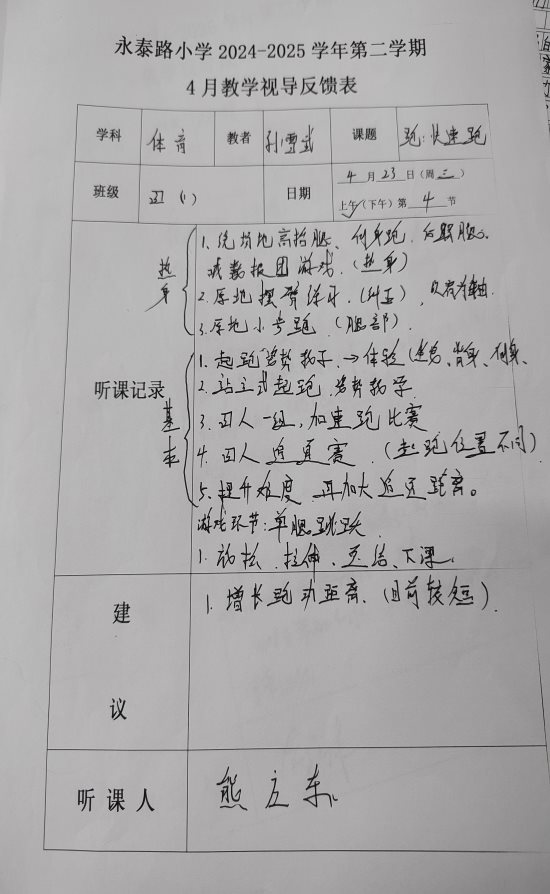 永泰路小学 2024-2025 学年第二学期
4 月教学视导反馈表
学科 体育 教者 孙雪武 课题 跑:快速跑
班级 四(1) 日期 4 月 23 日(周三)
上午(下午)第 4 节
热身
1. 绕场地高抬腿、侧身跑、后踢腿。
减数报团游戏.(热身)
2. 原地摆臂练习.(纠正),以肩为轴.
3. 原地小步跑 (腿部).
听课记录
基本
1. 起跑姿势教学.→体验(坐姿、背身、侧身、
2. 站立式起跑.姿势教学.
3. 四人一组,加速跑比赛
4. 四人追逐赛 (起跑位置不同)
5. 提升难度 再加大追逐距离。
游戏环节:单腿跳跃
1. 放松、拉伸、总结、下课.
建
议
1. 增长跑动距离.(目前较短).
听课人 熊庆东